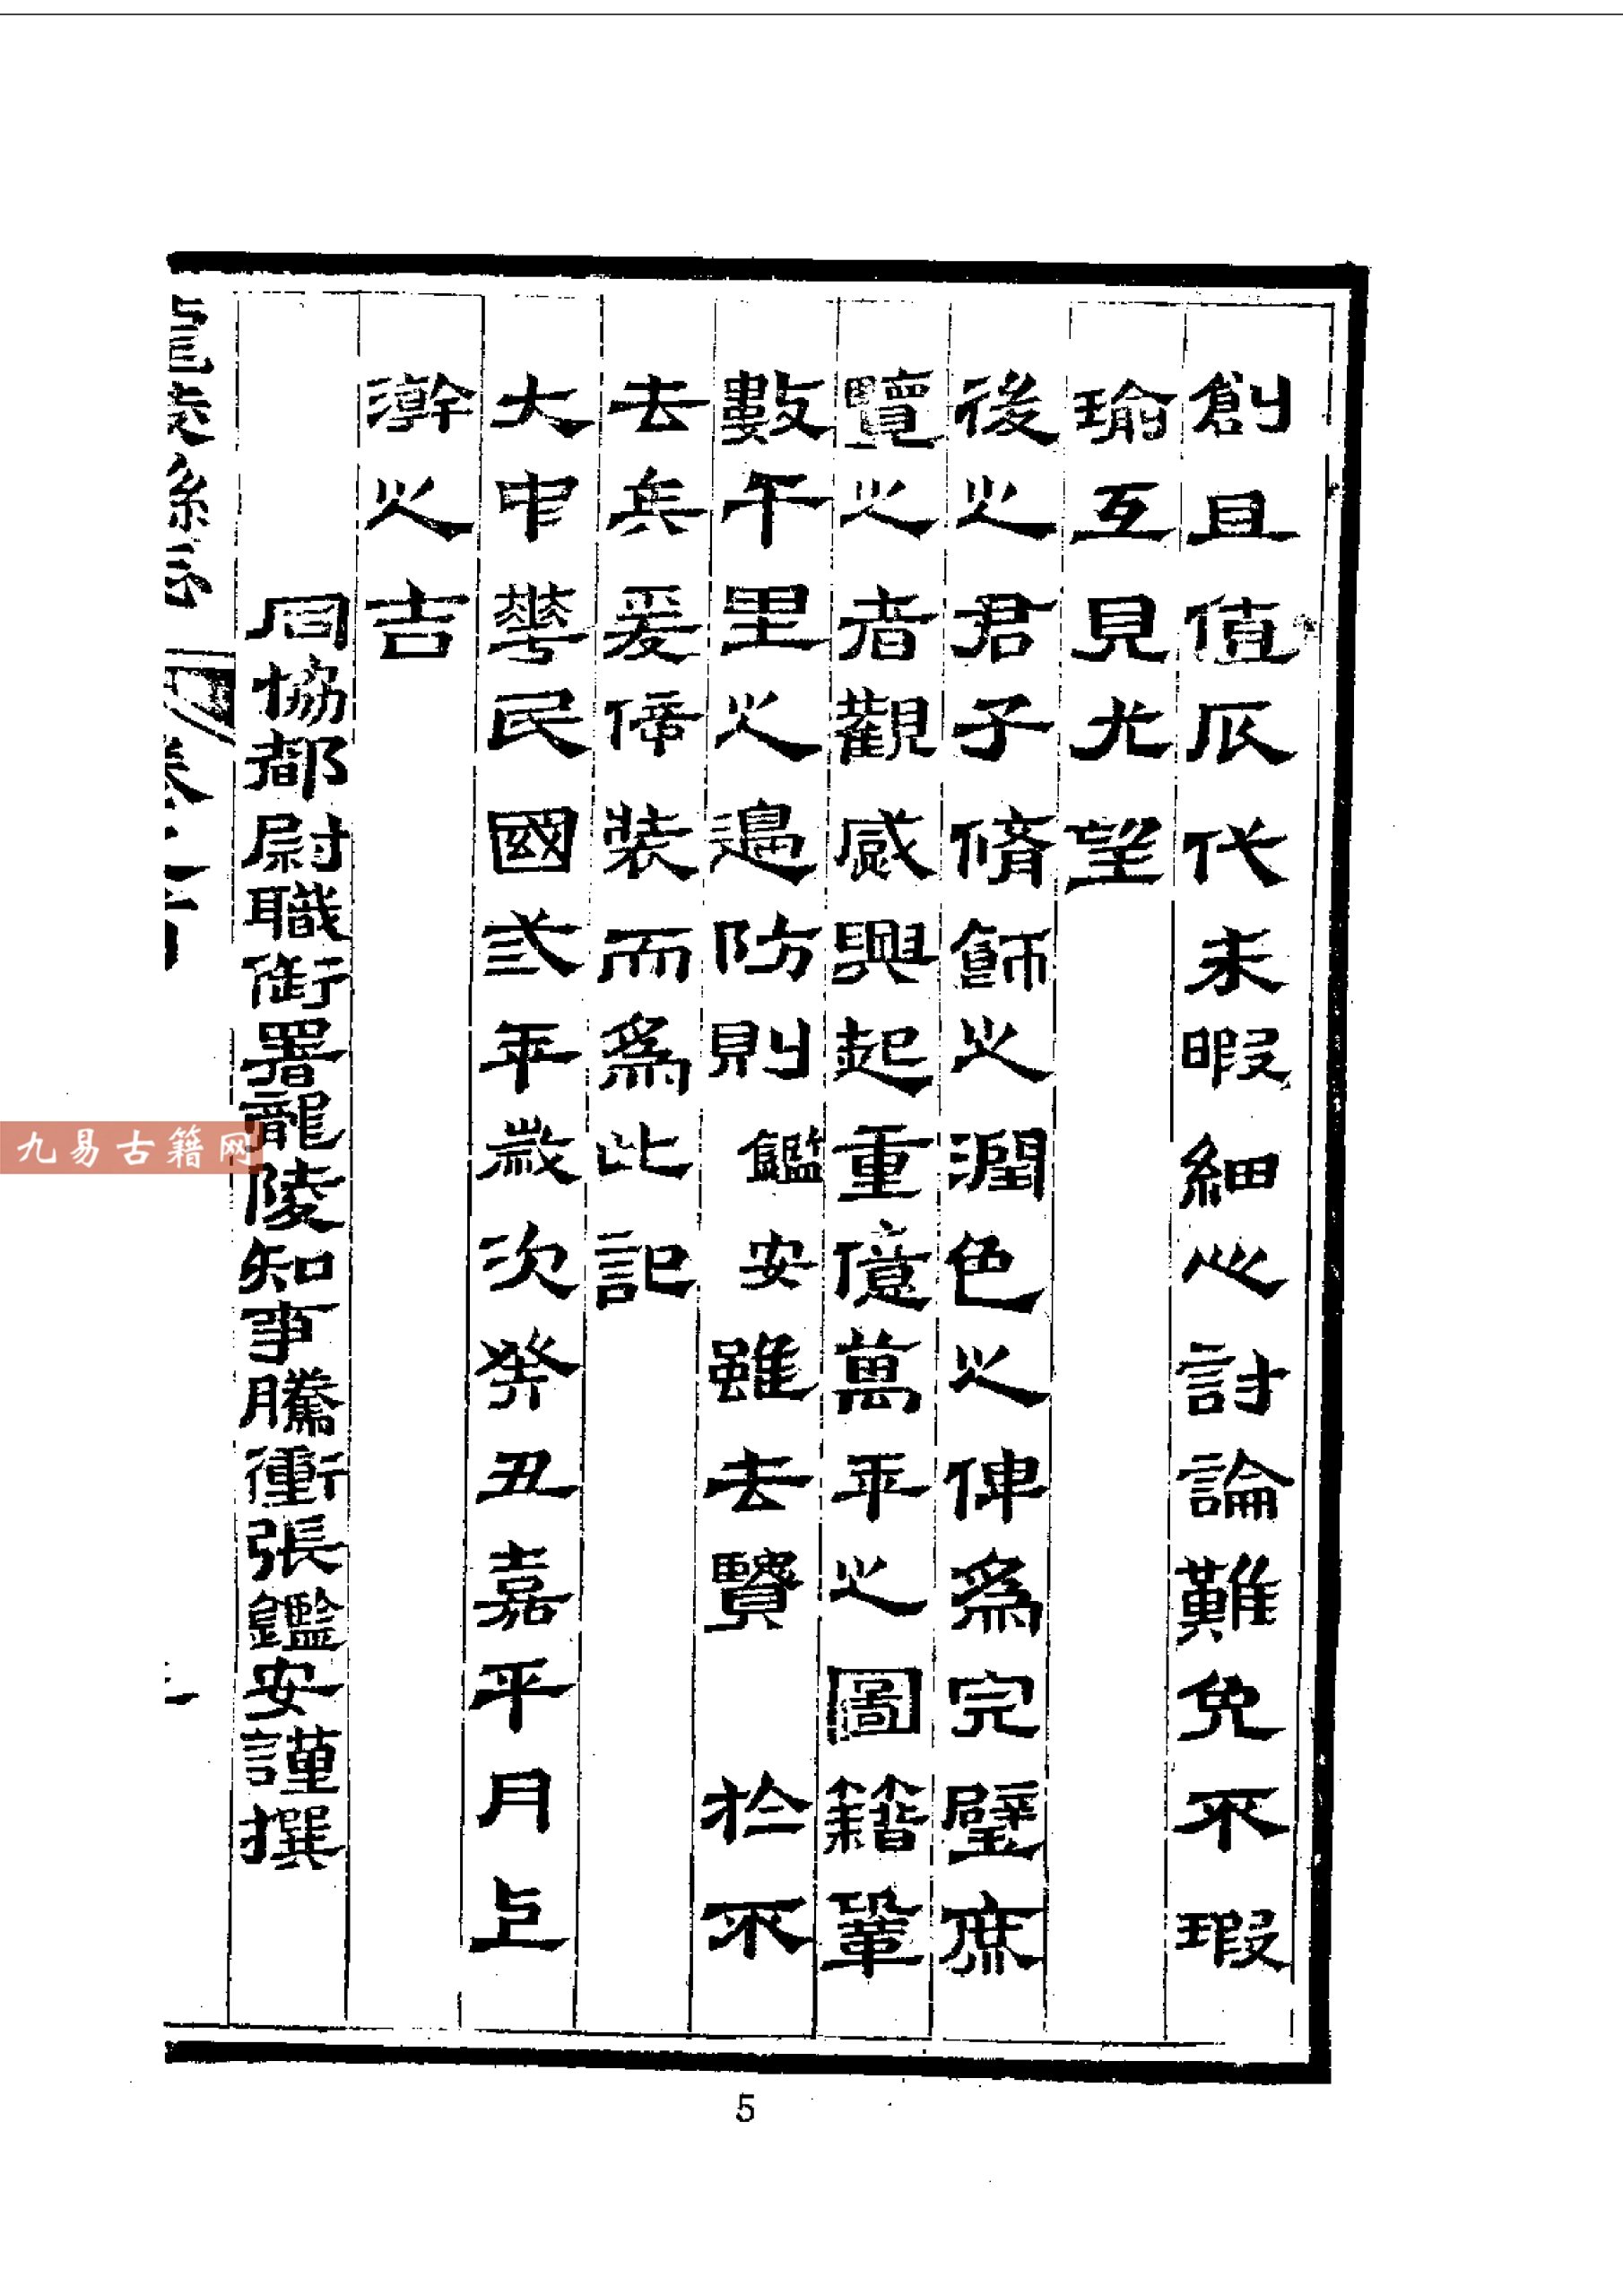 創且值瓜代未暇細心討論難免不瑕
瑜互見尤望
後之君子脩飾之潤色之俾爲完璧庶
覽之者觀感興起重億萬年之圖籍鞏
數千里之邊防則鑑安雖去賢 於不
去矣爰停裝而爲此記
大中華民國弍年歲次癸丑嘉平月上
澣之吉
同協都尉職銜署龍陵知事騰衝張鑑安謹撰
龍陵縣志 卷
九易古籍网
5